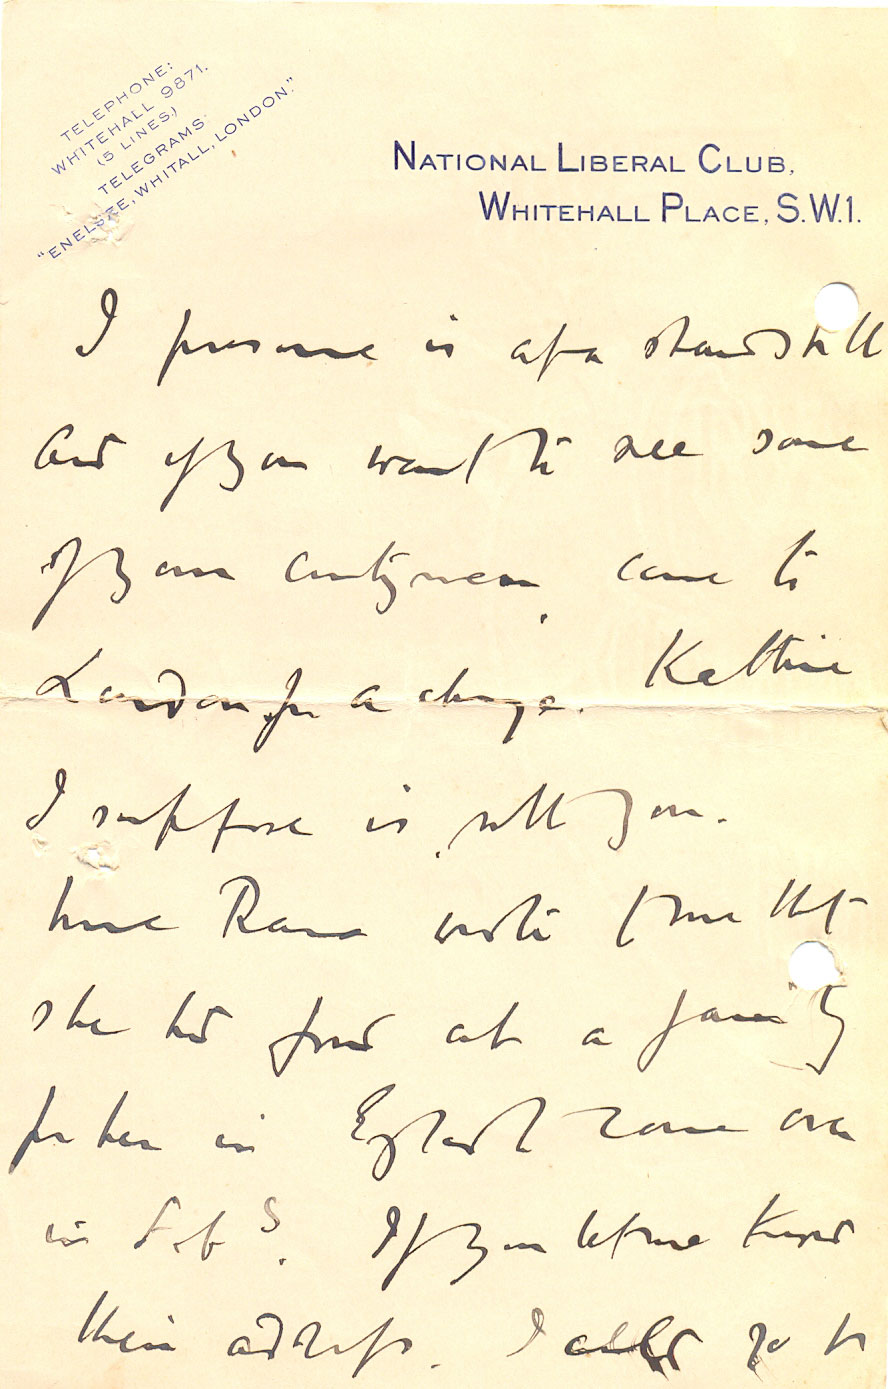 TELEPHONE:
WHITEHALL 9871.
(5 LINES.)
TELEGRAMS
"ENELSZE, WHITALL, LONDON."
NATIONAL LIBERAL CLUB,
WHITEHALL PLACE, S.W.1.
I presume is at a standstill
and if you want to see some
of your countrymen, come to
London for a change.
I suppose is with you.
Rama wrote to me that
she had found out a family
for her in England to come over
in If you let me know
their address. I could go to